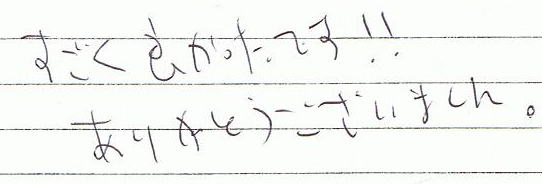 すごくよかったです!!
ありがとうございました。